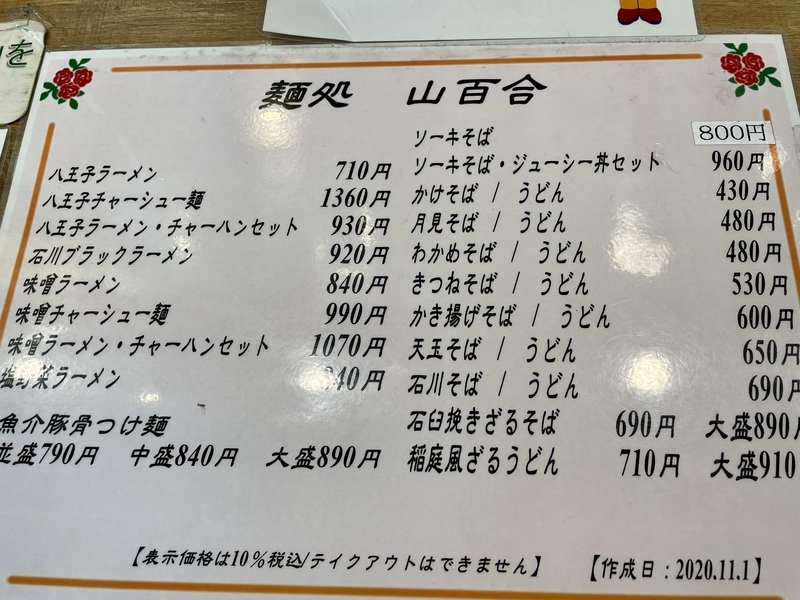 を
麺処 山百合
八王子ラーメン 710円
八王子チャーシュー麺 1360円
八王子ラーメン・チャーハンセット 930円
石川ブラックラーメン 920円
味噌ラーメン 840円
味噌チャーシュー麺 990円
味噌ラーメン・チャーハンセット 1070円
塩野菜ラーメン 40円
魚介豚骨つけ麺
並盛790円 中盛840円 大盛890円
ソーキそば 800円
ソーキそば・ジューシー丼セット 960円
かけそば / うどん 430円
月見そば / うどん 480円
わかめそば / うどん 480円
きつねそば / うどん 530円
かき揚げそば / うどん 600円
天玉そば / うどん 650円
石川そば / うどん 690円
石臼挽きざるそば 690円 大盛890円
稲庭風ざるうどん 710円 大盛910
【表示価格は10%税込/テイクアウトはできません】 【作成日：2020.11.1】